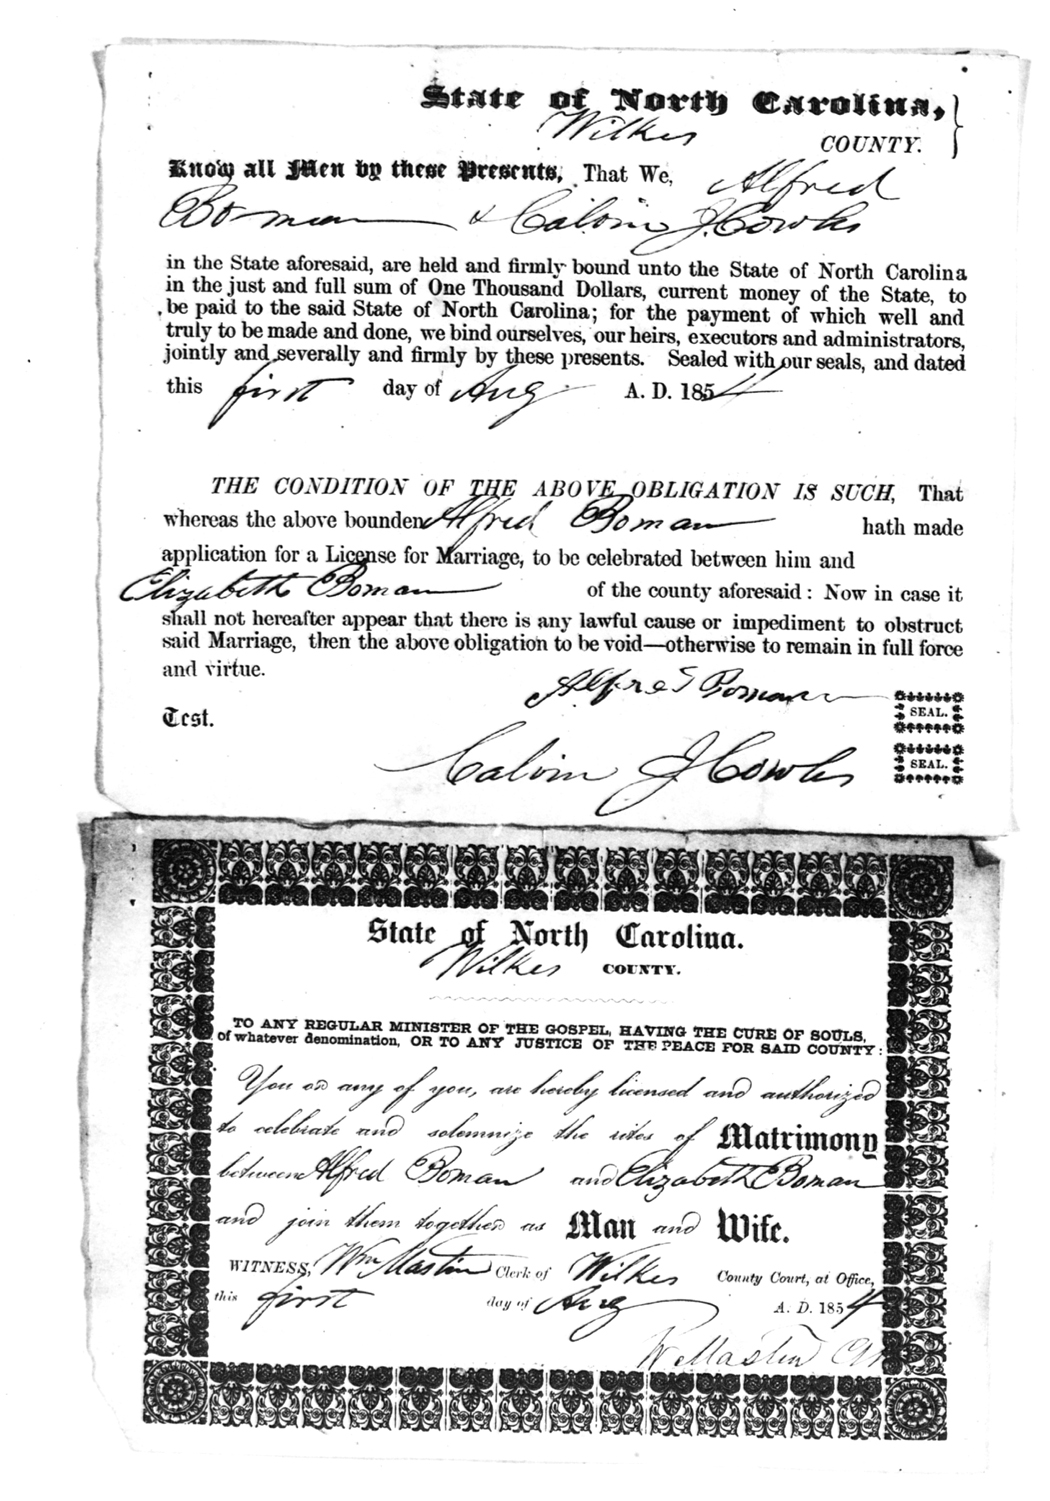 State of North Carolina,
Wilkes COUNTY.
Know all Men by these Presents, That We, Alfred
Boman & Calvin J. Cowles
in the State aforesaid, are held and firmly bound unto the State of North Carolina
in the just and full sum of One Thousand Dollars, current money of the State, to
be paid to the said State of North Carolina; for the payment of which well and
truly to be made and done, we bind ourselves, our heirs, executors and administrators,
jointly and severally and firmly by these presents. Sealed with our seals, and dated
this first day of Aug A. D. 1854
THE CONDITION OF THE ABOVE OBLIGATION IS SUCH, That
whereas the above bounden Alfred Boman hath made
application for a License for Marriage, to be celebrated between him and
Elizabeth Boman of the county aforesaid: Now in case it
shall not hereafter appear that there is any lawful cause or impediment to obstruct
said Marriage, then the above obligation to be void—otherwise to remain in full force
and virtue.
Alfred Boman SEAL.
Test.
Calvin J Cowles SEAL.
State of North Carolina.
Wilkes COUNTY.
TO ANY REGULAR MINISTER OF THE GOSPEL, HAVING THE CURE OF SOULS,
of whatever denomination, OR TO ANY JUSTICE OF THE PEACE FOR SAID COUNTY:
You or any of you, are hereby licensed and authorized
to celebrate and solemnize the rites of Matrimony
between Alfred Boman and Elizabeth Boman
and join them together as Man and Wife.
WITNESS, Wm Mastin Clerk of Wilkes County Court, at Office,
this first day of Aug A. D. 1854
W Mastin